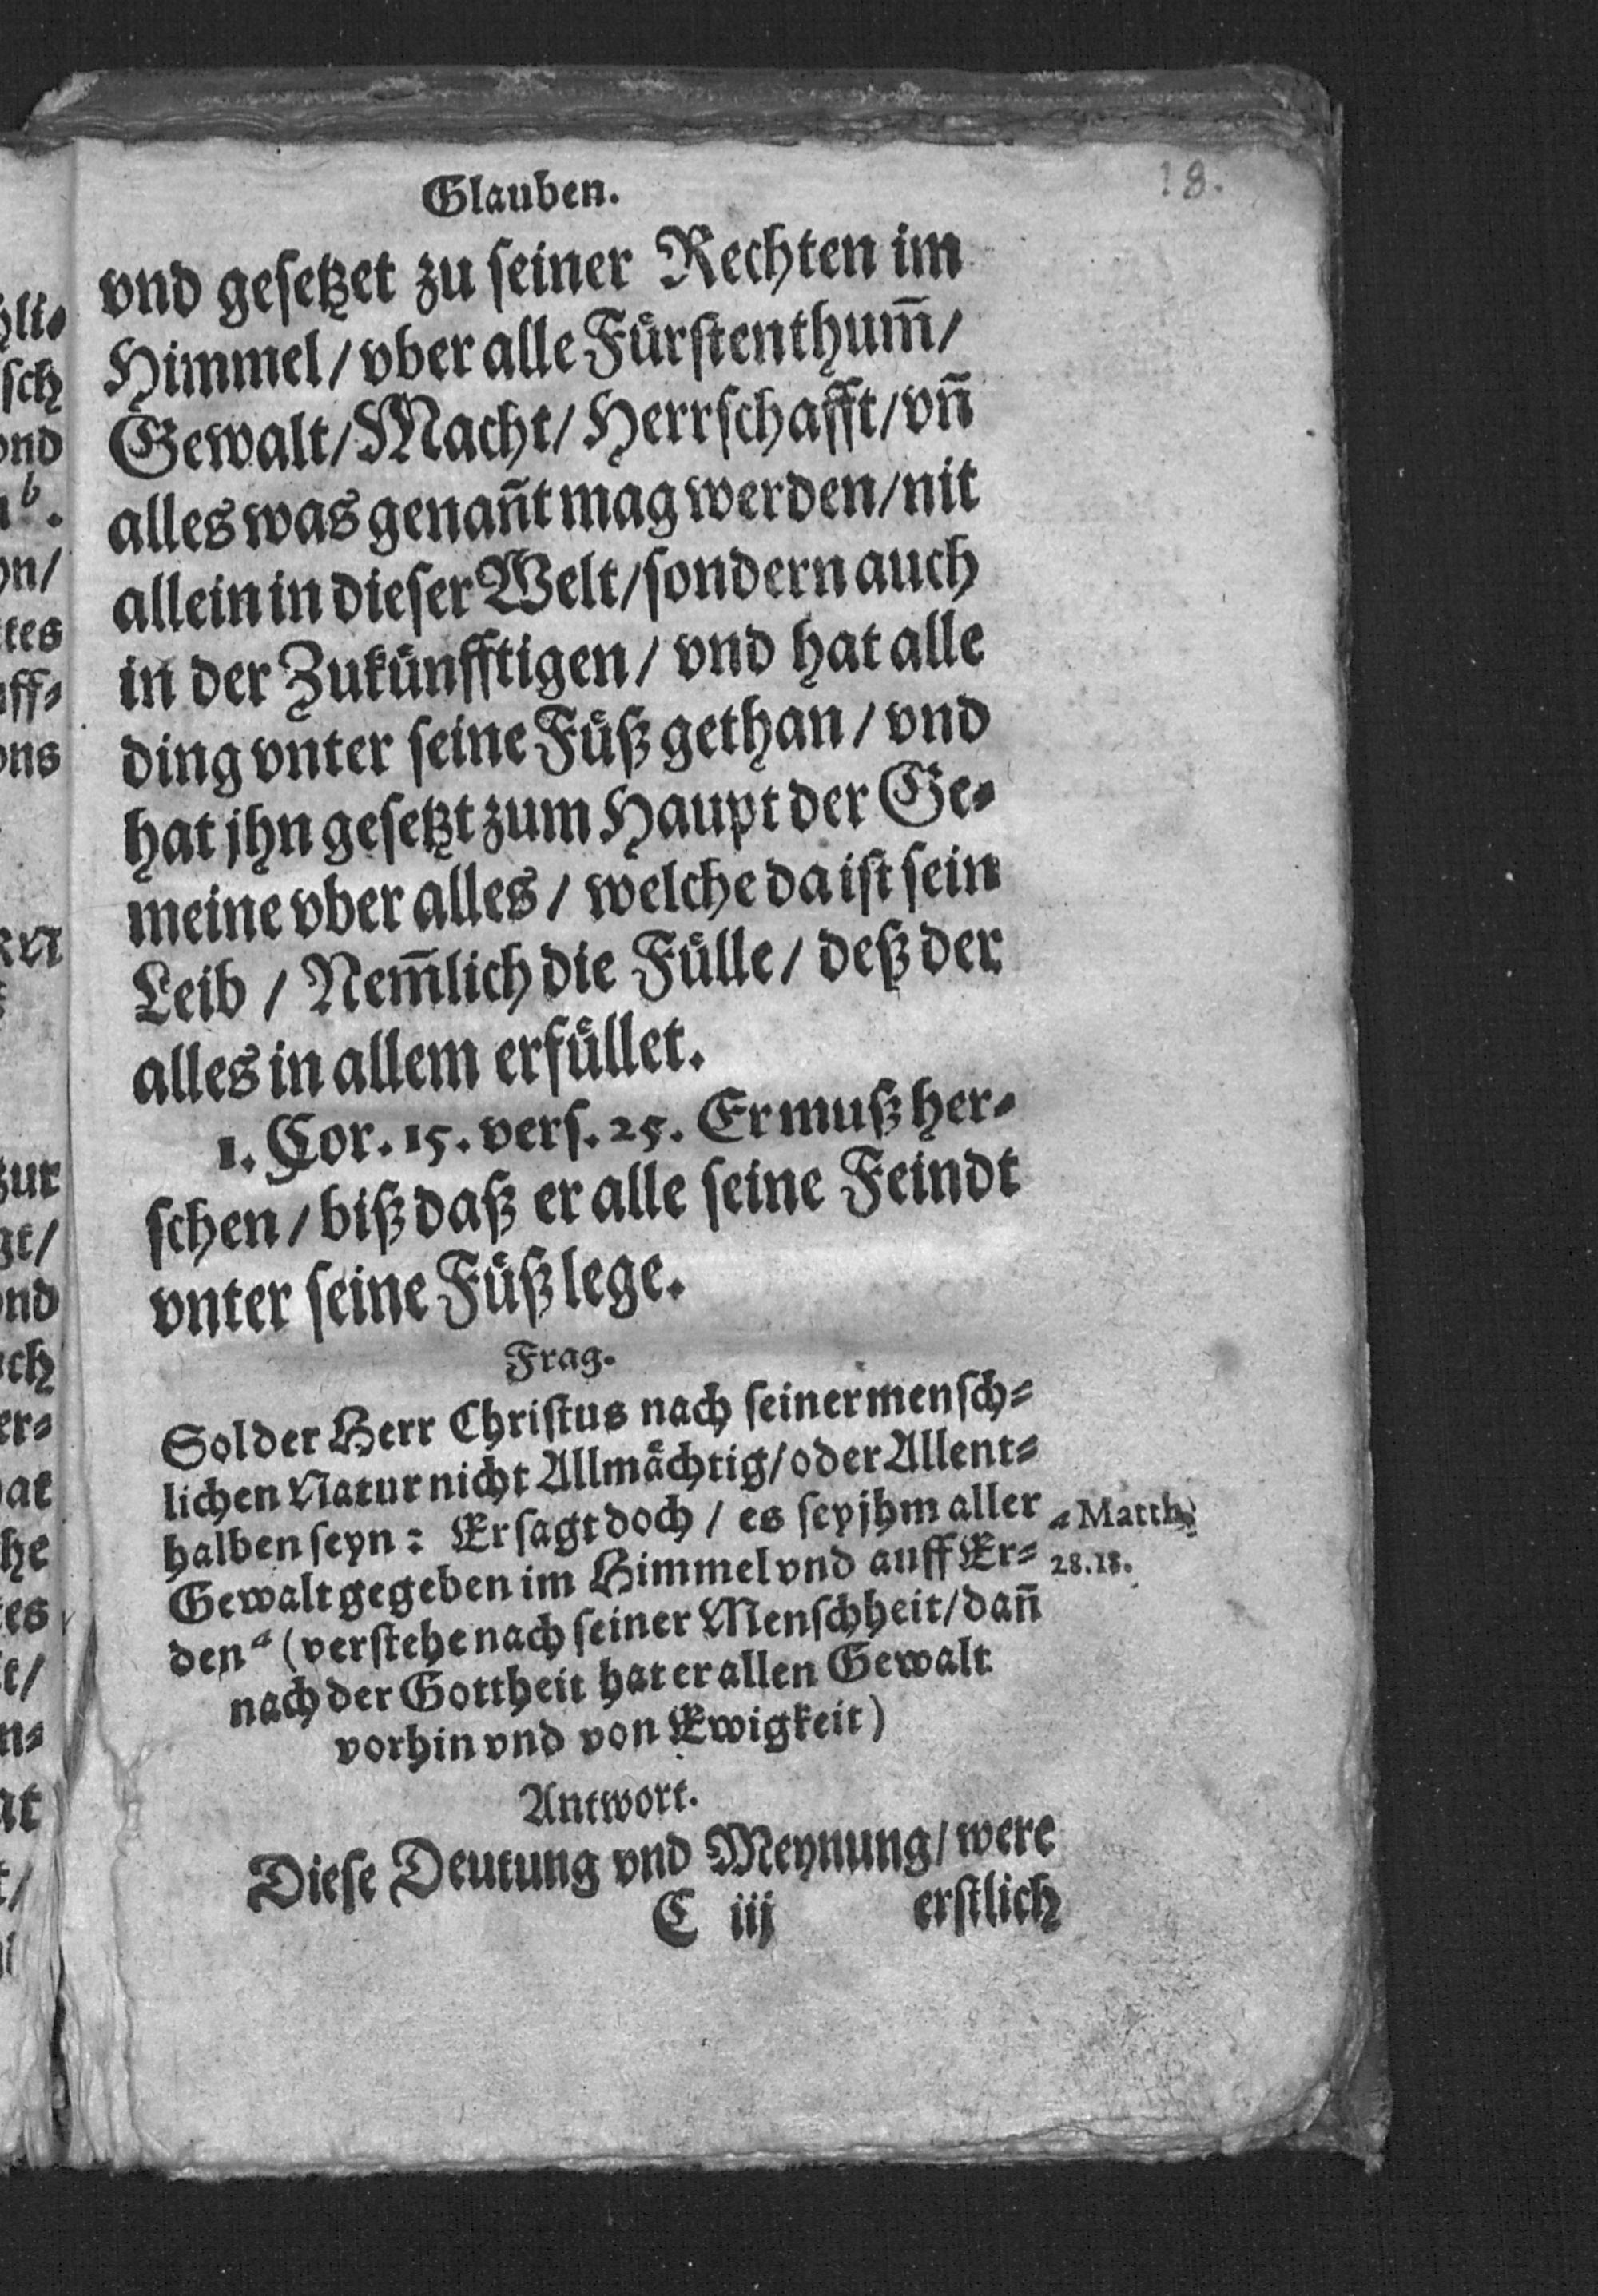 Glauben.
18.
vnd gesetzet zu seiner Rechten im
Himmel/ vber alle Fürstenthum̃/
Gewalt/ Macht/ Herrschafft/ vñ
alles was genañt mag werden/ nit
allein in dieser Welt/ sondern auch
in der Zukünfftigen/ vnd hat alle
ding vnter seine Füß gethan/ vnd
hat jhn gesetzt zum Haupt der Ge-
meine vber alles/ welche da ist sein
Leib / Nem̃lich die Fülle/ deß der
alles in allem erfüllet.
1. Cor. 15. vers. 25. Er muß her-
schen/ biß daß er alle seine Feindt
vnter seine Füß lege.
Frag.
Sol der Herr Christus nach seiner mensch-
lichen Natur nicht Allmächtig/ oder Allent-
halben seyn: Er sagt doch / es sey jhm aller
Gewalt gegeben im Himmel vnd auff Er-
den a (verstehe nach seiner Menschheit/ dañ
nach der Gottheit hat er allen Gewalt
vorhin vnd von Ewigkeit)
a Matth.
28.18.
Antwort.
Diese Deutung vnd Meynung/ were
C iij erstlich
hlt-
sch
vnd
b.
yn/
tes
uff-
vns
zur
gt/
vnd
uch
er-
hat
he
tes
t/
n-
at
t/